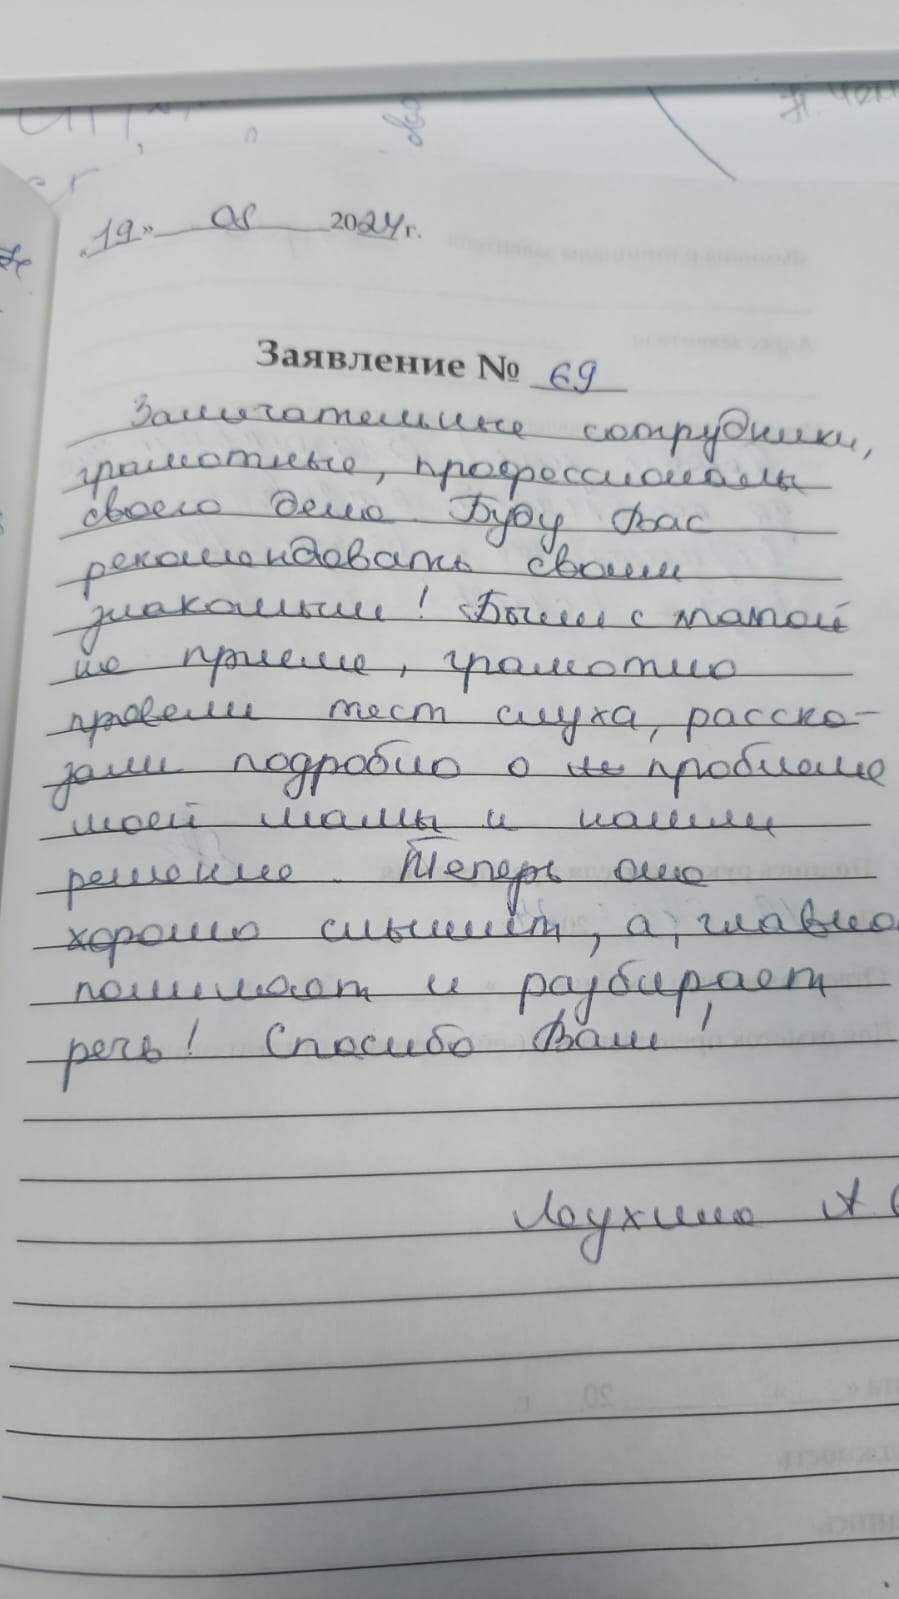 „19» 08 2024 г.
Заявление № 69
Замечательные сотрудники,
грамотные, профессионалы
своего дела. Буду Вас
рекомендовать своим
знакомым! Были с мамой
на приеме, грамотно
провели тест слуха, расска-
зали подробно о проблеме
моей мамы и нашли
решение. Теперь она
хорошо слышит, а, главно
понимает и разбирает
речь! Спасибо Вам!
Лаухина А.